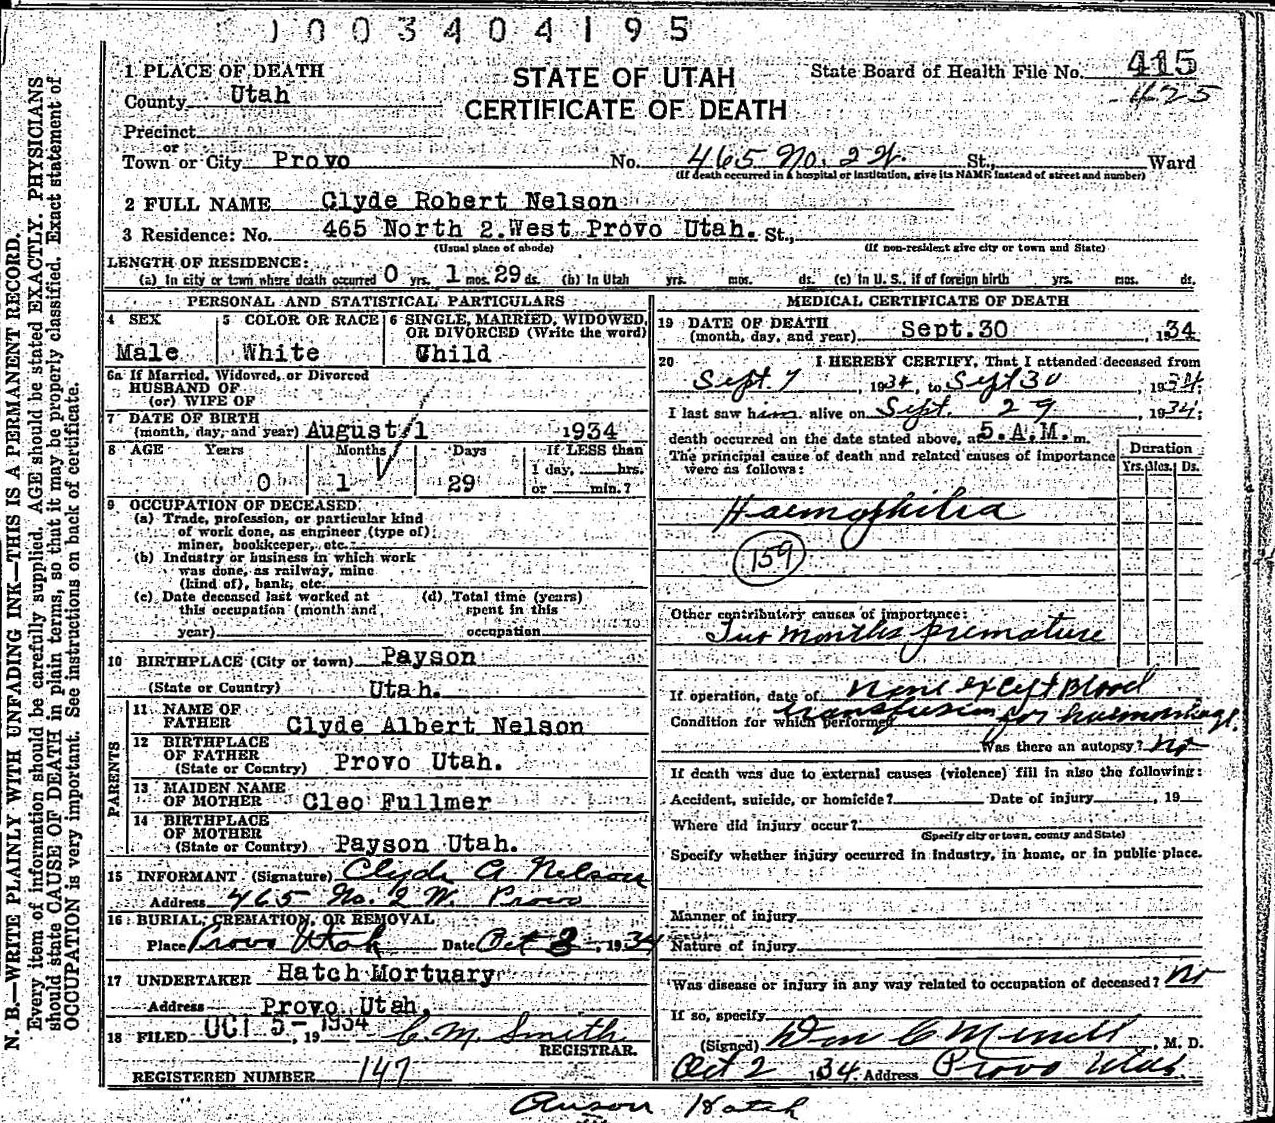 1003404195
1 PLACE OF DEATH
STATE OF UTAH
State Board of Health File No. 415
County Utah
CERTIFICATE OF DEATH
425
Precinct
or
Town or City Provo No. 465 No. 2 W. St., Ward
(If death occurred in a hospital or institution, give its NAME instead of street and number)
2 FULL NAME Clyde Robert Nelson
3 Residence: No. 465 North 2.West Provo Utah. St.,
(Usual place of abode) (If non-resident give city or town and State)
LENGTH OF RESIDENCE:
(a) In city or town where death occurred 0 yrs. 1 mos. 29 ds. (b) In Utah yrs. mos. ds. (c) In U. S., if of foreign birth yrs. mos. ds.
PERSONAL AND STATISTICAL PARTICULARS
4 SEX 5 COLOR OR RACE 6 SINGLE, MARRIED, WIDOWED, OR DIVORCED (Write the word)
Male White Child
6a If Married, Widowed, or Divorced
HUSBAND OF
(or) WIFE OF
7 DATE OF BIRTH
(month, day, and year) August 1 1934
8 AGE Years Months Days If LESS than
1 day, hrs.
0 1 29 or min.?
9 OCCUPATION OF DECEASED
(a) Trade, profession, or particular kind
of work done, as engineer (type of)
miner, bookkeeper, etc.
(b) Industry or business in which work
was done, as railway, mine
(kind of), bank, etc.
(c) Date deceased last worked at (d) Total time (years)
this occupation (month and spent in this
year) occupation
10 BIRTHPLACE (City or town) Payson
(State or Country) Utah.
PARENTS
11 NAME OF
FATHER Clyde Albert Nelson
12 BIRTHPLACE
OF FATHER
(State or Country) Provo Utah.
13 MAIDEN NAME
OF MOTHER Cleo Fullmer
14 BIRTHPLACE
OF MOTHER
(State or Country) Payson Utah.
15 INFORMANT (Signature) Clyde A Nelson
Address 465 No. 2 W. Provo
16 BURIAL, CREMATION, OR REMOVAL
Place Provo Utah Date Oct 3, 1934
17 UNDERTAKER Hatch Mortuary
Address Provo Utah,
18 FILED OCT 5-1934, 19 C. M. Smith
REGISTRAR.
REGISTERED NUMBER 147
MEDICAL CERTIFICATE OF DEATH
19 DATE OF DEATH
(month, day, and year) Sept.30, 1934
20 I HEREBY CERTIFY, That I attended deceased from
Sept 7, 1934, to Sept 30, 1934,
I last saw him alive on Sept. 29, 1934;
death occurred on the date stated above, at 5.A.M. m.
The principal cause of death and related causes of importance
were as follows:
Duration
Yrs. Mos. Ds.
Haemophilia
159
Other contributory causes of importance:
Two months premature
If operation, date of None except Blood
Condition for which performed transfusion for haemorrhage.
Was there an autopsy? No
If death was due to external causes (violence) fill in also the following:
Accident, suicide, or homicide? Date of injury, 19
Where did injury occur?
(Specify city or town, county and State)
Specify whether injury occurred in industry, in home, or in public place.
Manner of injury
Nature of injury
Was disease or injury in any way related to occupation of deceased? No
If so, specify
(Signed) Don C Merrill, M. D.
Oct 2 1934 Address Provo Utah
Anson Hatch
N. B.—WRITE PLAINLY WITH UNFADING INK—THIS IS A PERMANENT RECORD.
Every item of information should be carefully supplied. AGE should be stated EXACTLY. PHYSICIANS
should state CAUSE OF DEATH in plain terms, so that it may be properly classified. Exact statement of
OCCUPATION is very important. See instructions on back of certificate.